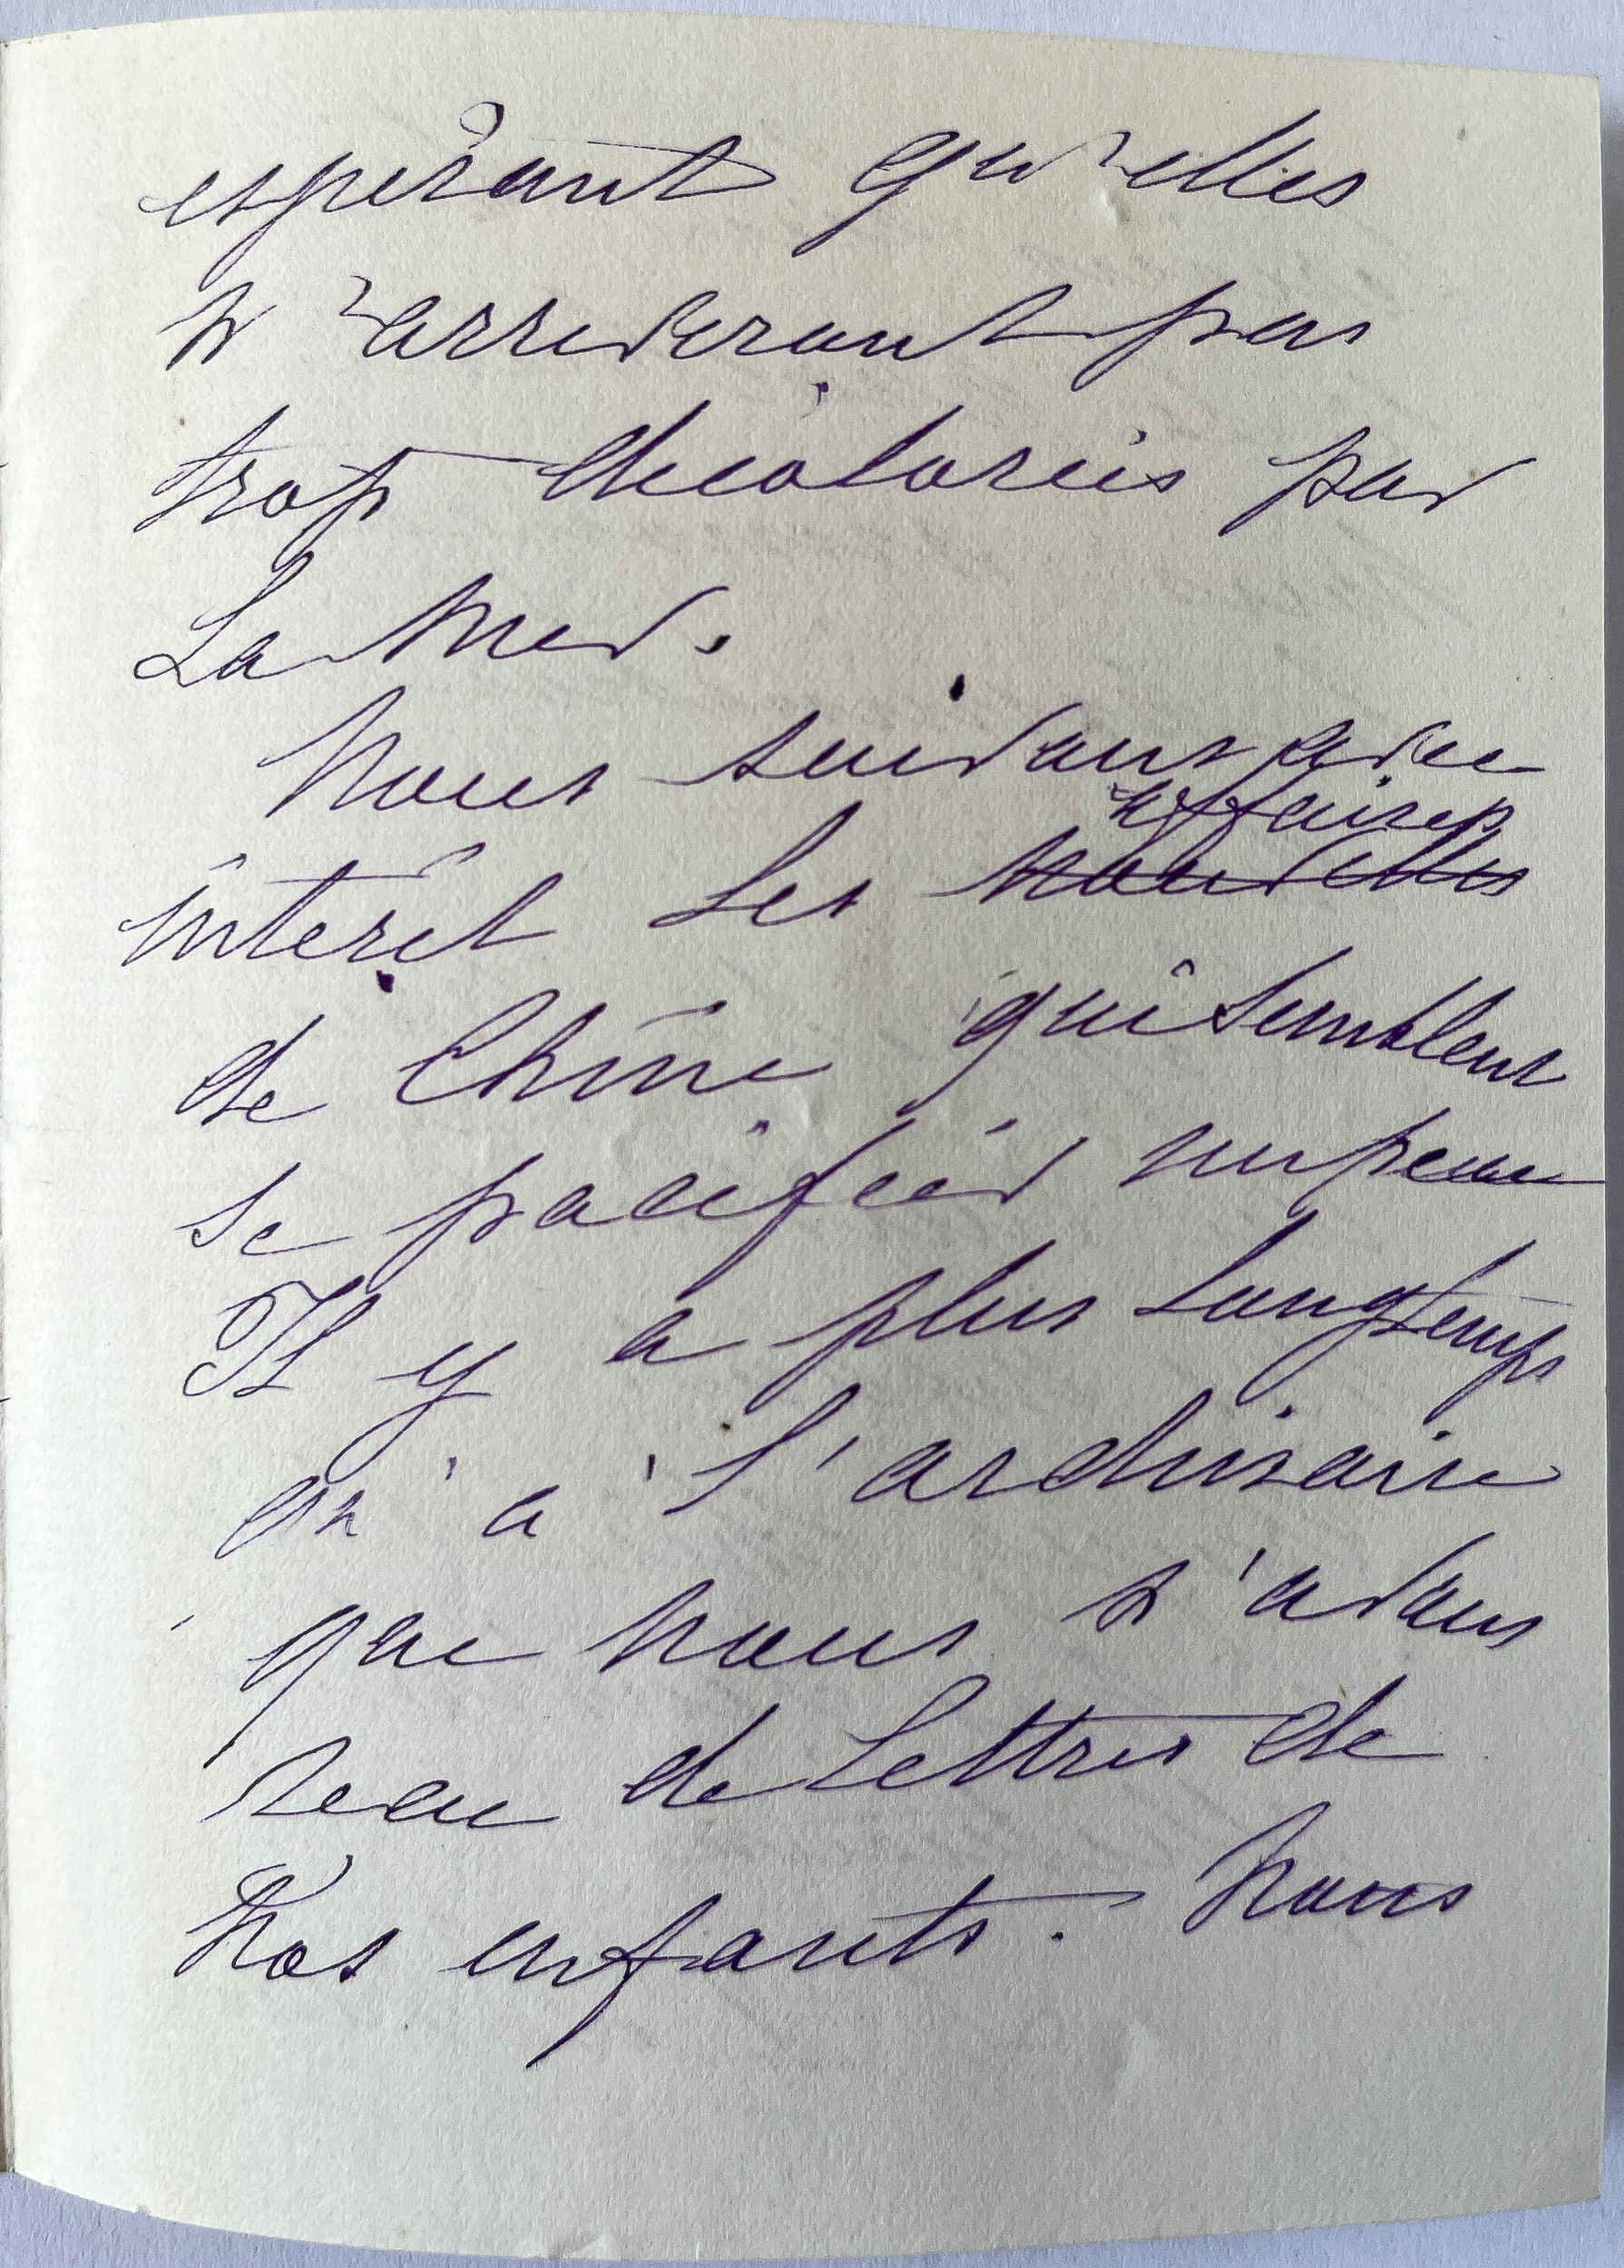 espérant qu'elles
n'arriveront pas
trop décolorées par
La mer.
Nous suivons avec
intérêt les nouvelles affaires
de Chine qui semblent
se pacifier un peu
Il y a plus longtemps
qu'à l'ordinaire
que nous n'avons
reçu de lettres de
nos enfants. Nous